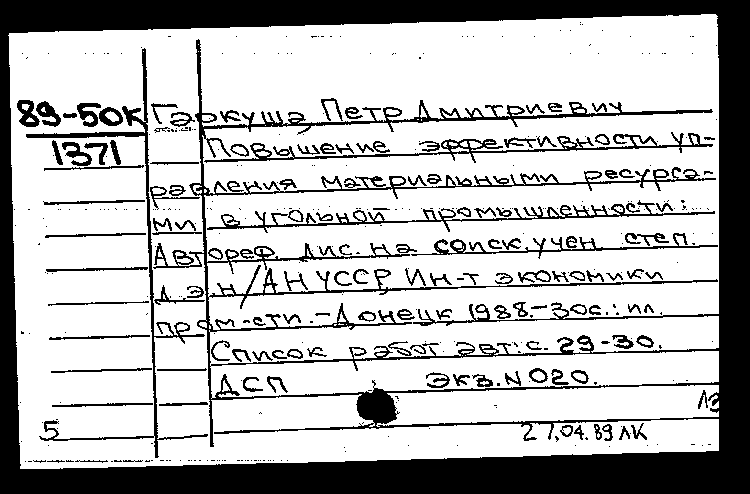 89-50К Гаркуша, Петр Дмитриевич
1371 Повышение эффективности уп-
равления материальными ресурса-
ми в угольной промышленности:
Автореф. дис. на соиск. учен. степ.
д.э.н/АН УССР, Ин-т экономики
пром-сти.-Донецк, 1988.-30с.: ил.
Список работ авт.: с. 29-30.
ДСП Экз. N 020.
5
27.04.89 ЛК